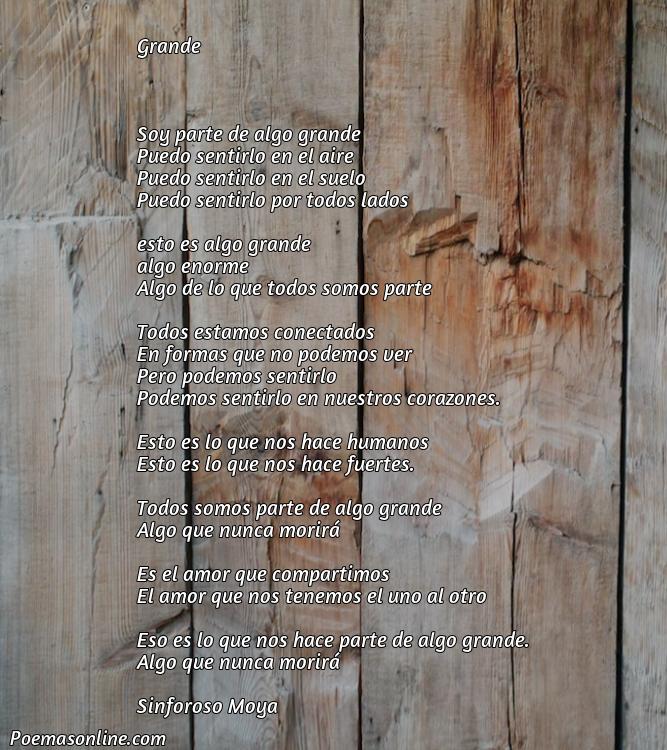 Grande
Soy parte de algo grande
Puedo sentirlo en el aire
Puedo sentirlo en el suelo
Puedo sentirlo por todos lados
esto es algo grande
algo enorme
Algo de lo que todos somos parte
Todos estamos conectados
En formas que no podemos ver
Pero podemos sentirlo
Podemos sentirlo en nuestros corazones.
Esto es lo que nos hace humanos
Esto es lo que nos hace fuertes.
Todos somos parte de algo grande
Algo que nunca morirá
Es el amor que compartimos
El amor que nos tenemos el uno al otro
Eso es lo que nos hace parte de algo grande.
Algo que nunca morirá
Sinforoso Moya
Poemasonline.com